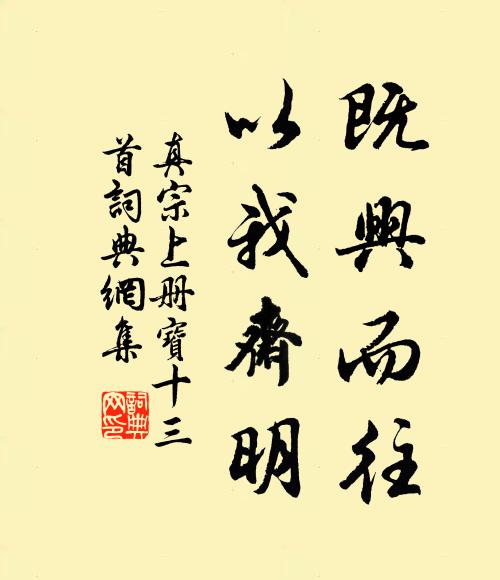 既興而往
以我齊明
真宗上册寶十三
首詞典網集
詞典
網印